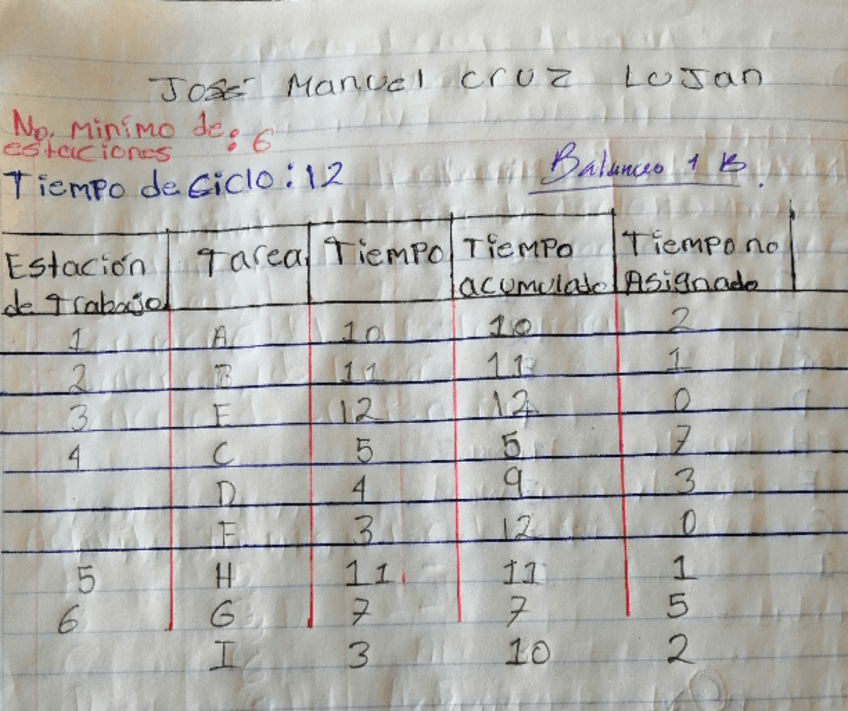 José Manuel Cruz Lujan
No. Minimo de: 6
estaciones
Tiempo de Ciclo: 12
Balanceo 1 B.
Estación de Trabajo Tarea Tiempo Tiempo acumulado Tiempo no Asignado
1 A 10 10 2
2 B 11 11 1
3 E 12 12 0
4 C 5 5 7
D 4 9 3
F 3 12 0
5 H 11 11 1
6 G 7 7 5
I 3 10 2